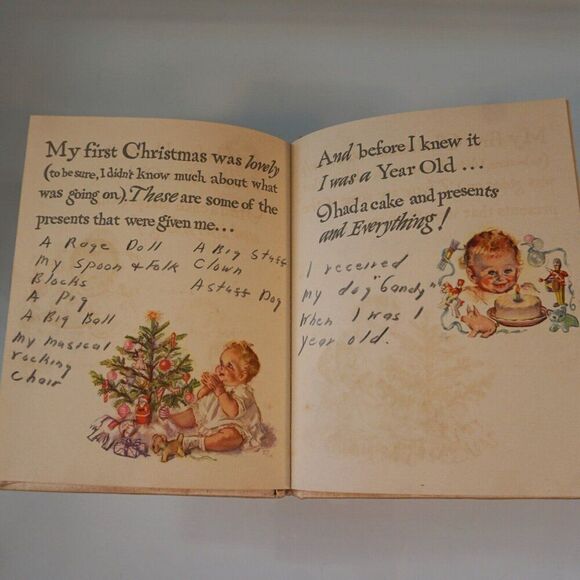 My first Christmas was lovely
(to be sure, I didn't know much about what
was going on). These are some of the
presents that were given me...
A Rage Doll
My Spoon & Folk
Blocks
A Pig
A Big Ball
My musical
rocking
chair
A Big Stuff
Clown
A stuff Dog
And before I knew it
I was a Year Old...
I had a cake and presents
and Everything!
I received
my dog "Candy"
When I was 1
year old.